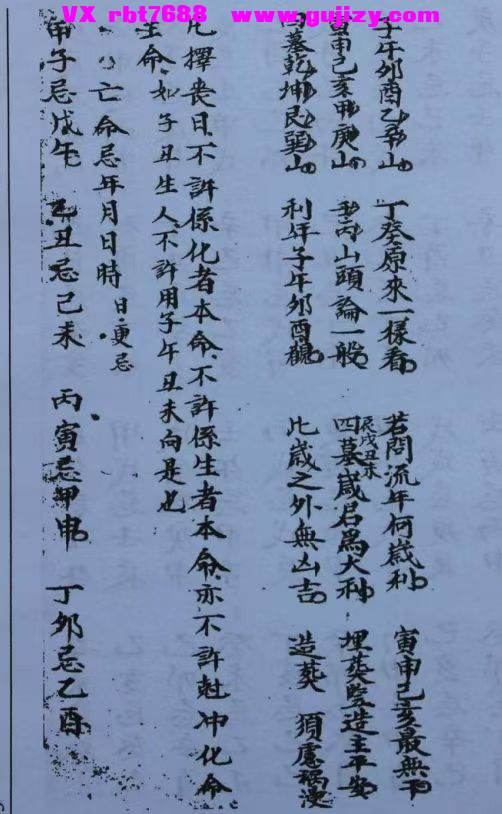 VX rbt7688 www.gujizy.com
子午卯酉乙辛山 丁癸原來一樣看 若問流年何歲利 寅申巳亥最無干
寅申巳亥甲庚山 壬丙山頭論一般 四墓歲君爲大利 埋葬豎造主平安
辰戌丑未
四墓乾坤艮巽山 利年子午卯酉觀 此歲之外無凶吉 造葬須慮禍
凡擇丧日不許係化者本命不許係生者本命亦不許尅冲化命
生命如子丑生人不許用子午丑未向是也
亡命忌年月日時 日更忌
甲子忌戊午 乙丑忌己未 丙寅忌甲申 丁卯忌乙酉